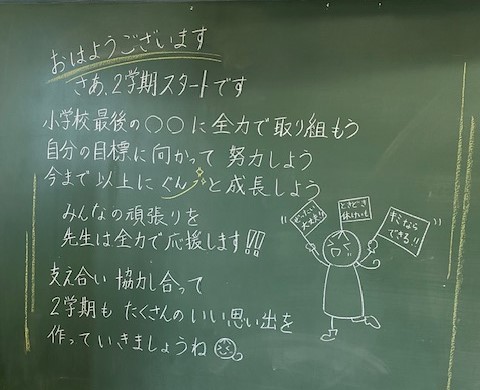 おはようございます
さあ、2学期スタートです
小学校最後の〇〇に全力で取り組もう
自分の目標に向かって努力しよう
今まで以上にぐんと成長しよう
みんなの頑張りを
先生は全力で応援します!!
支え合い協力し合って
2学期もたくさんのいい思い出を
作っていきましょうね
ぜったい
大丈夫!!
ときどき
休けいも
キミなら
できる!!